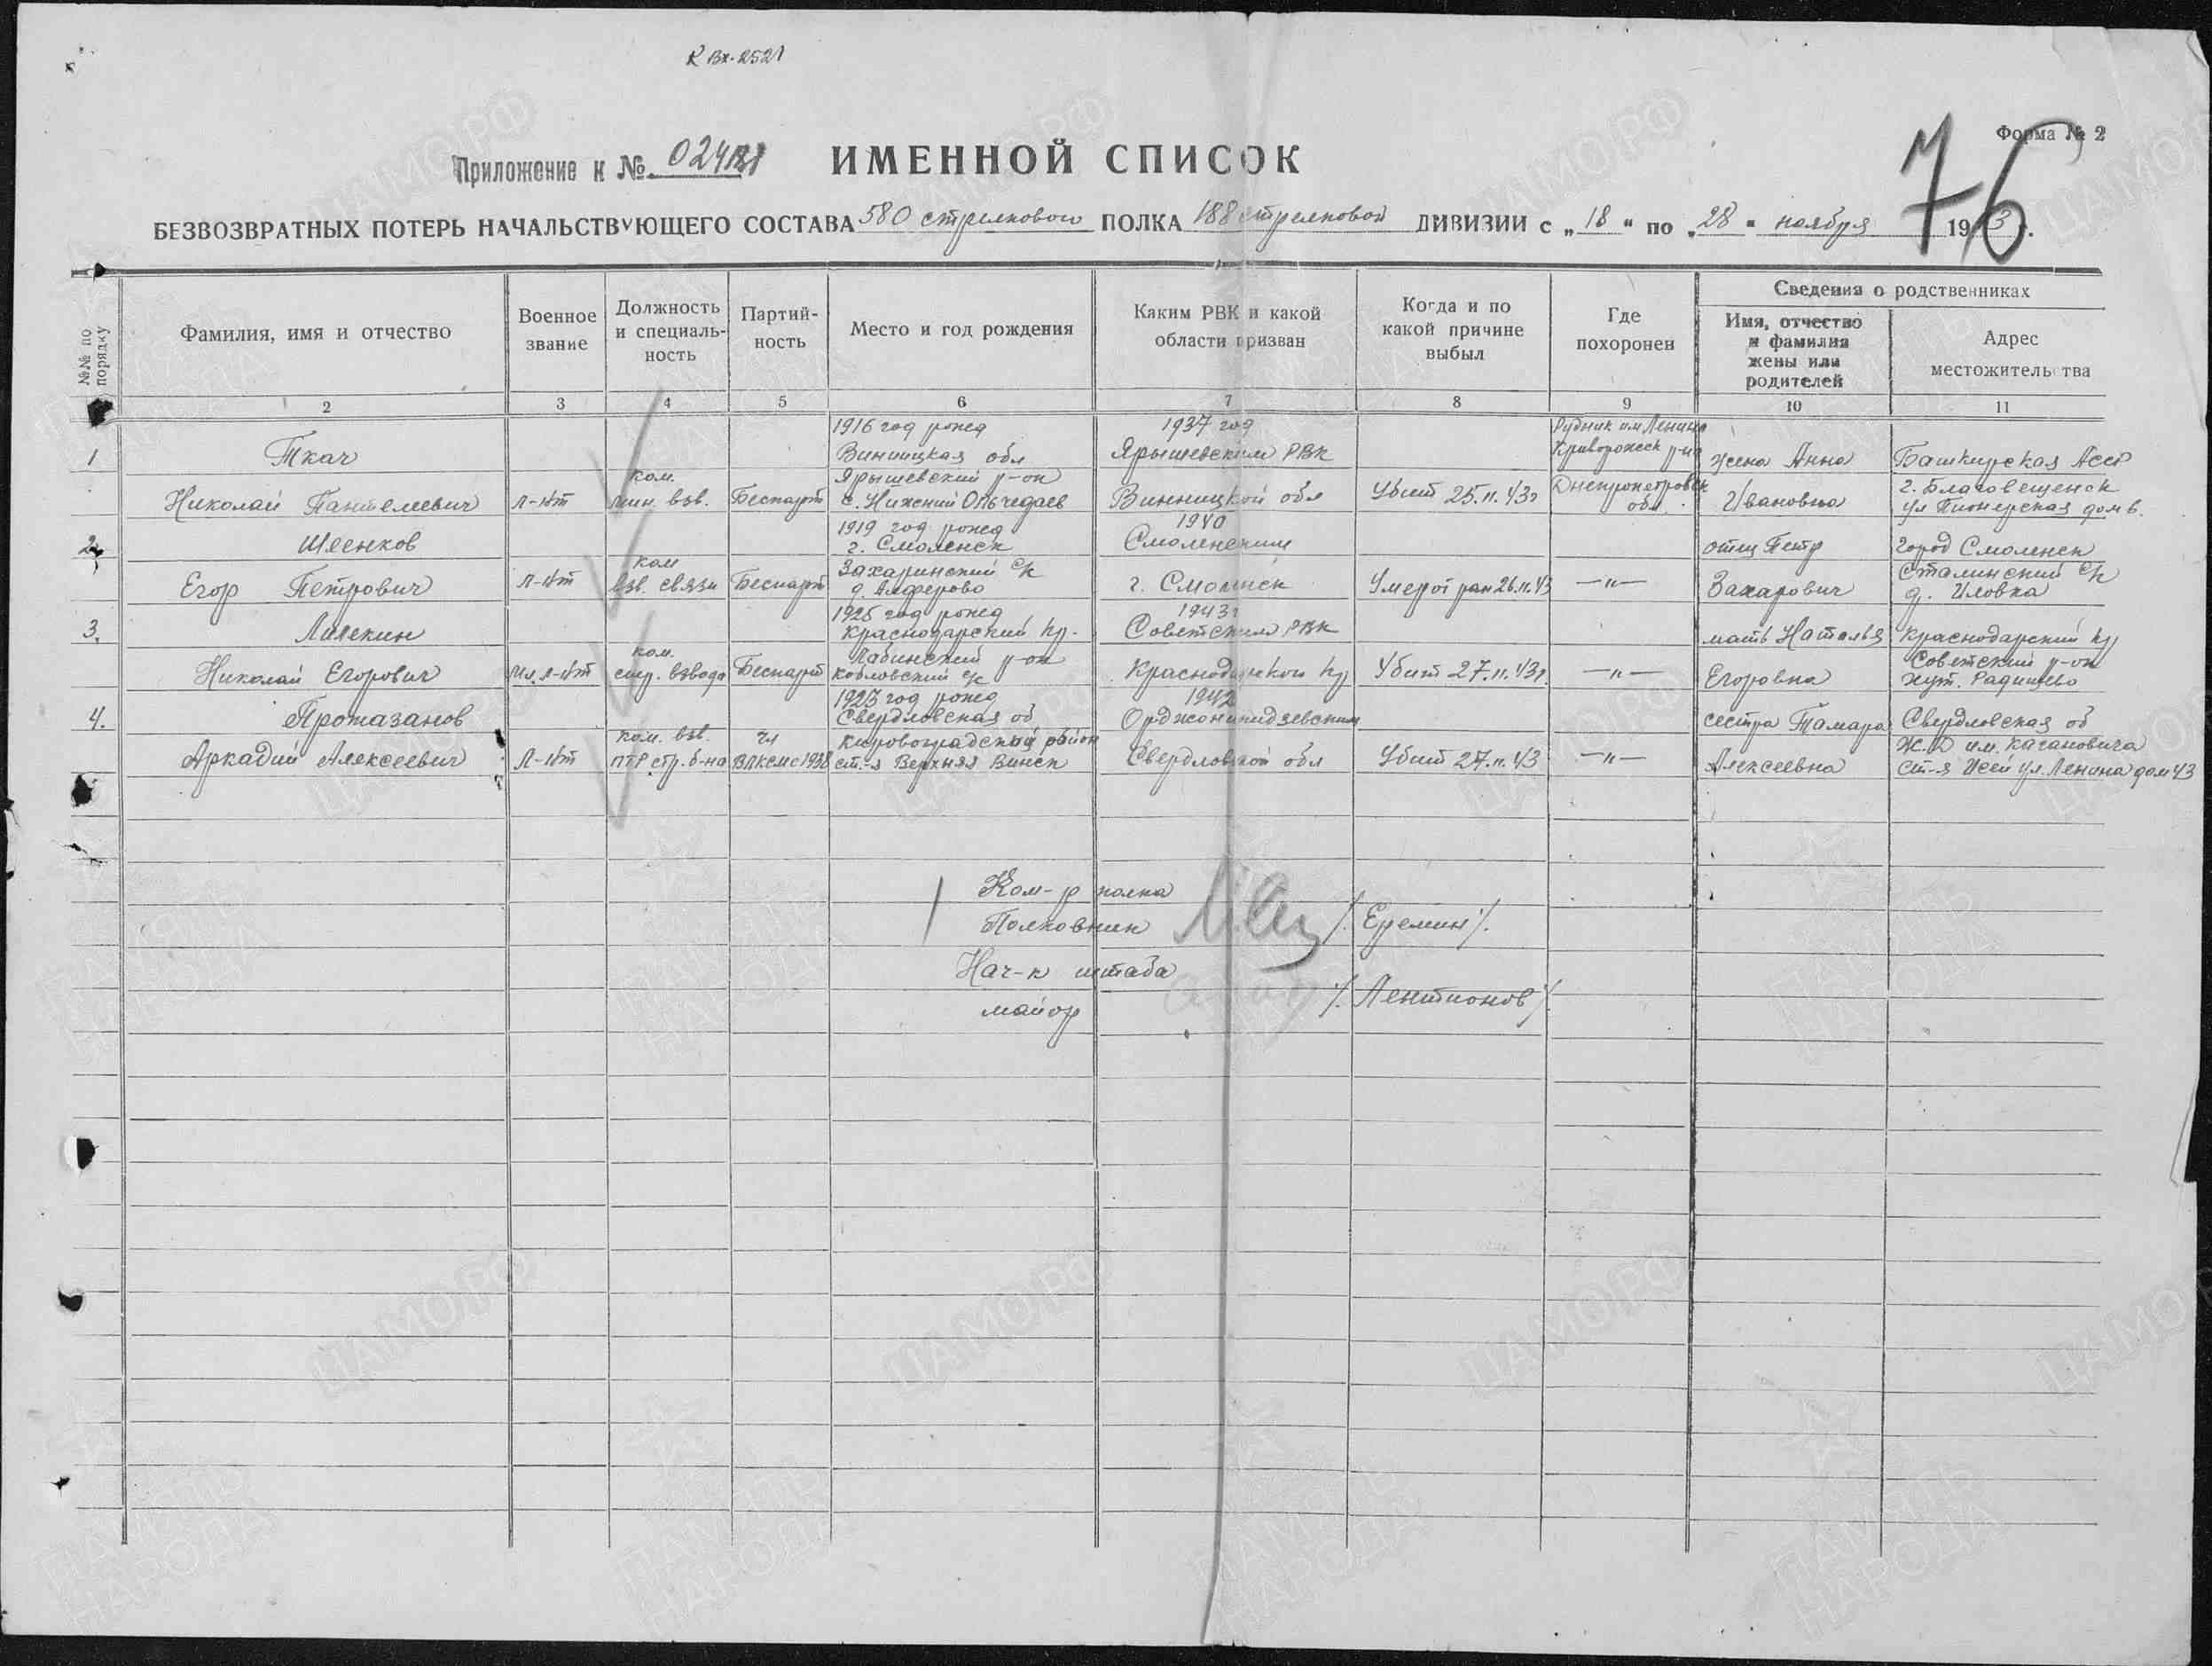 к вх. 2521
Форма № 2
76
Приложение к №
ИМЕННОЙ СПИСОК
БЕЗВОЗВРАТНЫХ ПОТЕРЬ НАЧАЛЬСТВУЮЩЕГО СОСТАВА 580 стрелкового ПОЛКА 188 стрелковой ДИВИЗИИ с „18“ по „28“ ноября 1943 г.
№№ по порядку
Фамилия, имя и отчество
Военное звание
Должность и специаль-ность
Партий-ность
Место и год рождения
Каким РВК и какой области призван
Когда и по какой причине выбыл
Где похоронен
Сведения о родственниках
Имя, отчество и фамилия жены или родителей
Адрес местожительства
2 3 4 5 6 7 8 9 10 11
1
Ткач
Николай Пантелеевич
л-нт
ком.
мин. взв.
Беспарт
1916 год рожд
Винницкая обл
Ярышевский р-он
с. Нижний Ольчедаев
1937 год
Ярышевским РВК
Винницкой обл
Убит 25.11.43г
Рудник им Ленина
Криворожск р-на
Днепропетровск
обл.
жена Анна
Ивановна
Башкирская Асср
г. Благовещенск
ул Пионерская дом 6.
2
Шленков
Егор Петрович
л-нт
ком
взв. связи
Беспарт
1919 год рожд
г. Смоленск
Захаринский с/с
д. Алферово
1940
Смоленским
г. Смоленск
Умер от ран 26.11.43
—"—
отец Петр
Захарович
город Смоленск
Сталинский с/с
д. Иловка
3.
Лилекин
Николай Егорович
Мл. л-нт
ком.
стр. взвода
Беспарт
1925 год рожд
Краснодарский кр.
Лабинский р-он
1943г
Советским РВК
Краснодарской кр
Убит 27.11.43г.
—"—
мать Наталья
Егоровна
Краснодарский кр
Советский р-он
хут. Радищево
4.
Протазанов
Аркадий Алексеевич
Л-нт
ком. взв.
ПТР стр. б-на
чл
ВЛКСМ с 1938
1923 год рожд
Свердловская об
Кировоградский район
ст.-я Верхняя
1942
Орджоникидзевским
Свердловской обл
Убит 27.11.43
—"—
сестра Тамара
Алексеевна
Свердловская об
Ж.Д им. Кагановича
ст-я Исеть ул. Ленина дом 43
Ком-р полка
Полковник /. Еремин /.
Нач-к штаба
майор /. Лентионов /.